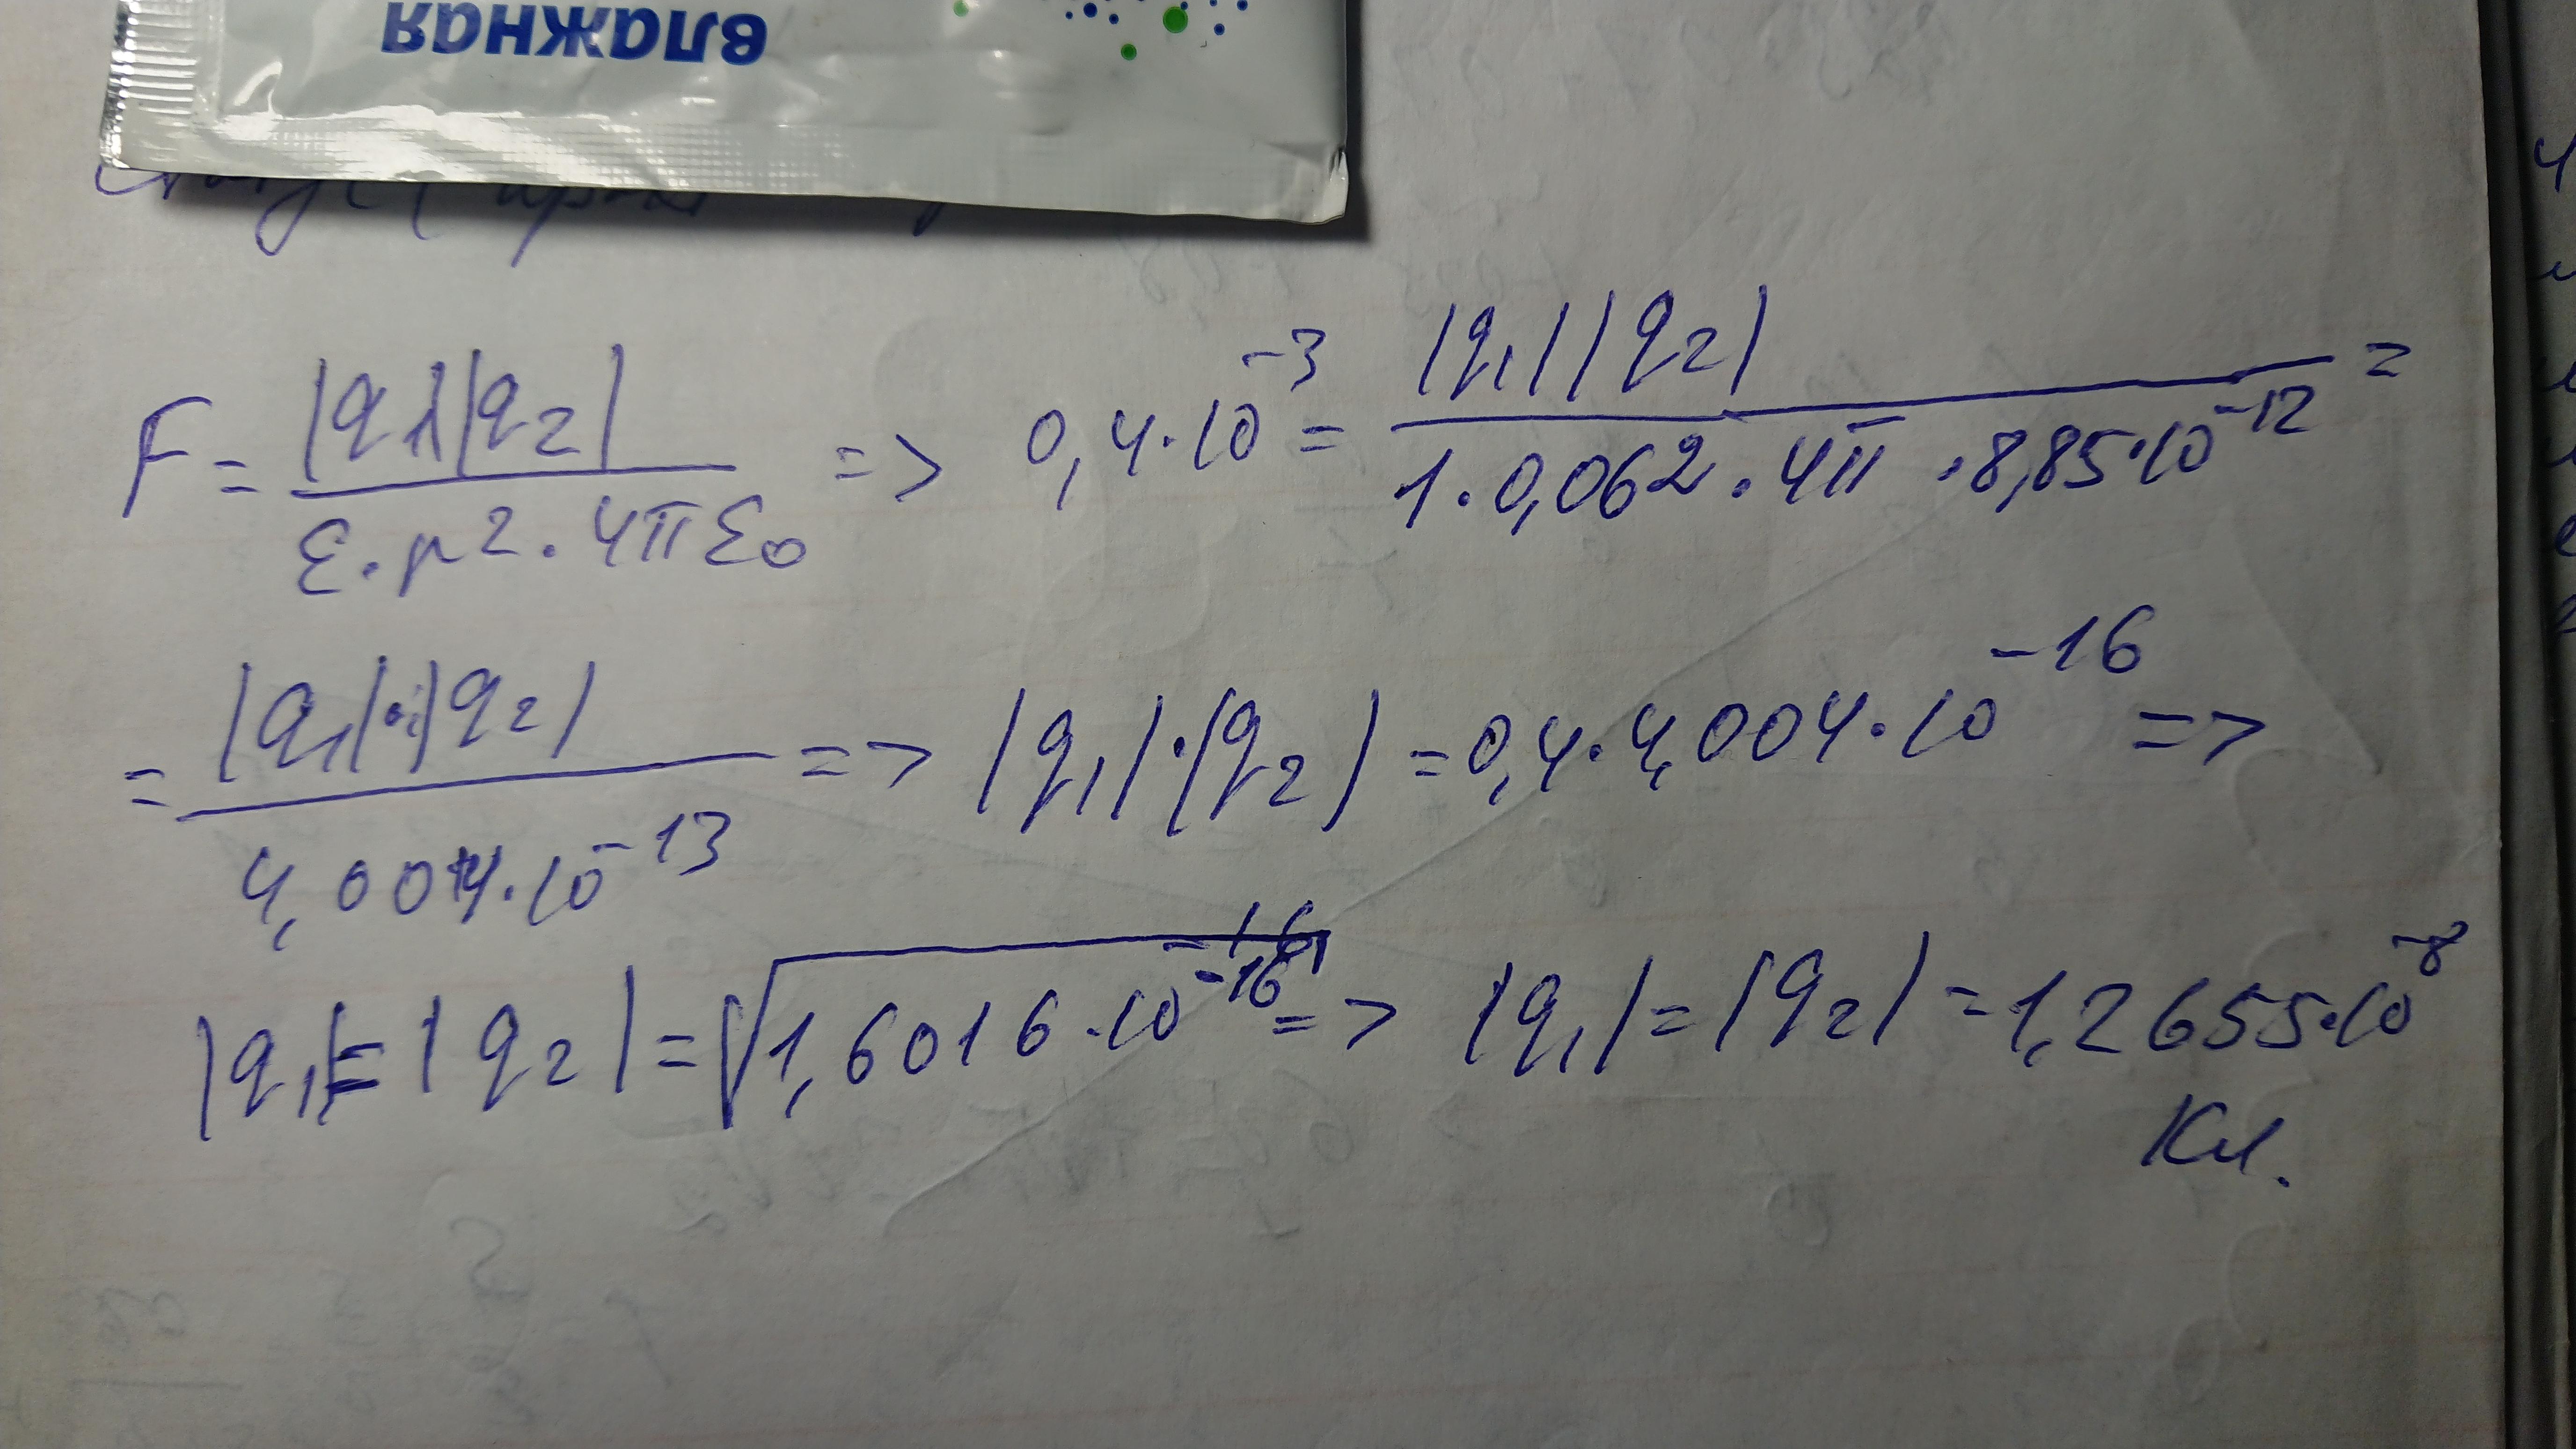 влажная
F = |q1||q2| / ε·r²·4πε₀ => 0,4·10⁻³ = |q₁||q₂| / 1·0,062·4π·8,85·10⁻¹² =
= |q₁|·|q₂| / 4,004·10⁻¹³ => |q₁|·|q₂| = 0,4·4,004·10⁻¹⁶ =>
|q₁| = |q₂| = √1,6016·10⁻¹⁶ => |q₁| = |q₂| = 1,2655·10⁻⁸
Кл.